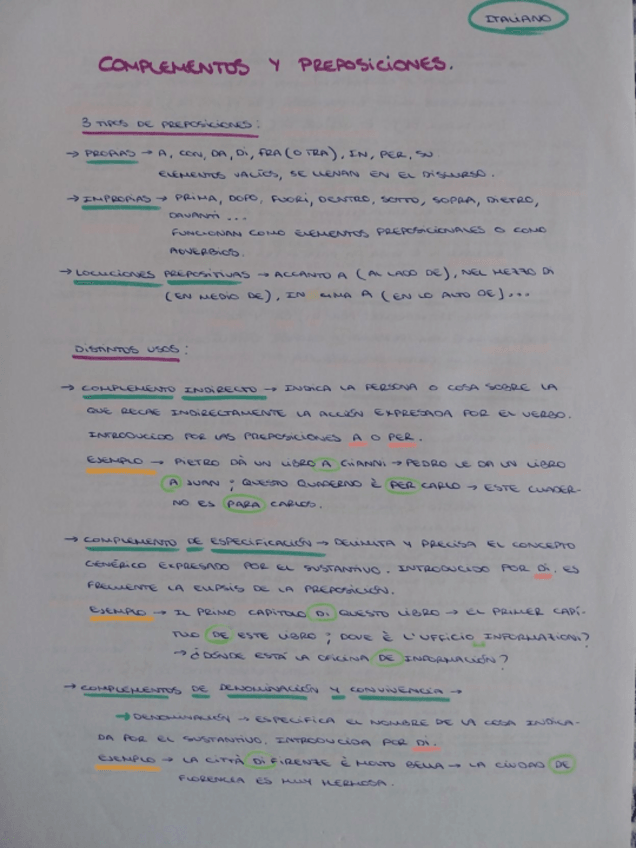 ITALIANO
COMPLEMENTOS Y PREPOSICIONES.
3 TIPOS DE PREPOSICIONES:
→ PROPIAS → A, CON, DA, DI, FRA (O TRA), IN, PER, SU
ELEMENTOS VACÍOS, SE LLENAN EN EL DISCURSO.
→ IMPROPIAS → PRIMA, DOPO, FUORI, DENTRO, SOTTO, SOPRA, DIETRO,
DAVANTI ...
FUNCIONAN COMO ELEMENTOS PREPOSICIONALES O COMO
ADVERBIOS.
→ LOCUCIONES PREPOSITIVAS → ACCANTO A (AL LADO DE), NEL MEZZO DI
(EN MEDIO DE), IN CIMA A (EN LO ALTO DE)...
DISTINTOS USOS:
→ COMPLEMENTO INDIRECTO → INDICA LA PERSONA O COSA SOBRE LA
QUE RECAE INDIRECTAMENTE LA ACCIÓN EXPRESADA POR EL VERBO.
INTRODUCIDO POR LAS PREPOSICIONES A O PER.
EJEMPLO → PIETRO DÀ UN LIBRO A GIANNI → PEDRO LE DA UN LIBRO
A JUAN ; QUESTO QUADERNO È PER CARLO → ESTE CUADER-
NO ES PARA CARLOS.
→ COMPLEMENTO DE ESPECIFICACIÓN → DELIMITA Y PRECISA EL CONCEPTO
GENÉRICO EXPRESADO POR EL SUSTANTIVO. INTRODUCIDO POR DI. ES
LA ELIPSIS DE LA PREPOSICIÓN.
EJEMPLO → IL PRIMO CAPITOLO DI QUESTO LIBRO → EL PRIMER CAPÍ-
TULO DE ESTE LIBRO ; DOVE È L'UFFICIO INFORMAZIONI?
→ ¿DÓNDE ESTÁ LA OFICINA DE INFORMACIÓN?
→ COMPLEMENTOS DE DENOMINACIÓN Y →
→ DENOMINACIÓN → ESPECIFICA EL NOMBRE DE LA COSA INDICA-
DA POR EL SUSTANTIVO. INTRODUCIDA POR DI.
EJEMPLO → LA CITTÀ DI FIRENZE È MOLTO BELLA → LA CIUDAD DE
FLORENCIA ES MUY HERMOSA.